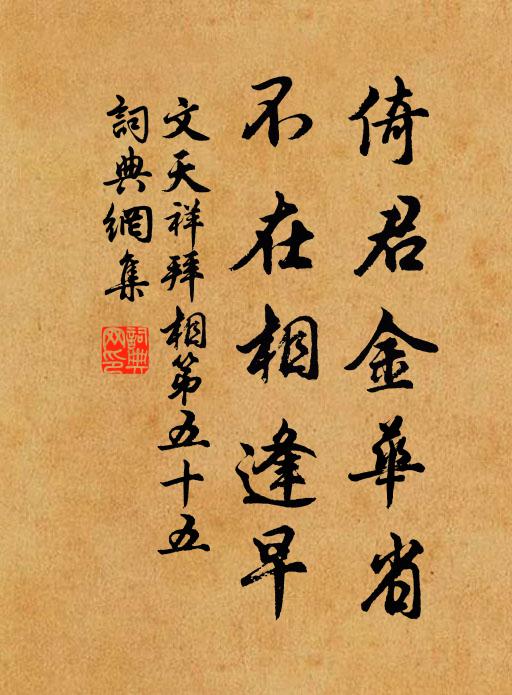 倚君金華省
不在相逢早
文天祥拜相第五十五
詞典網集
詞典
网印